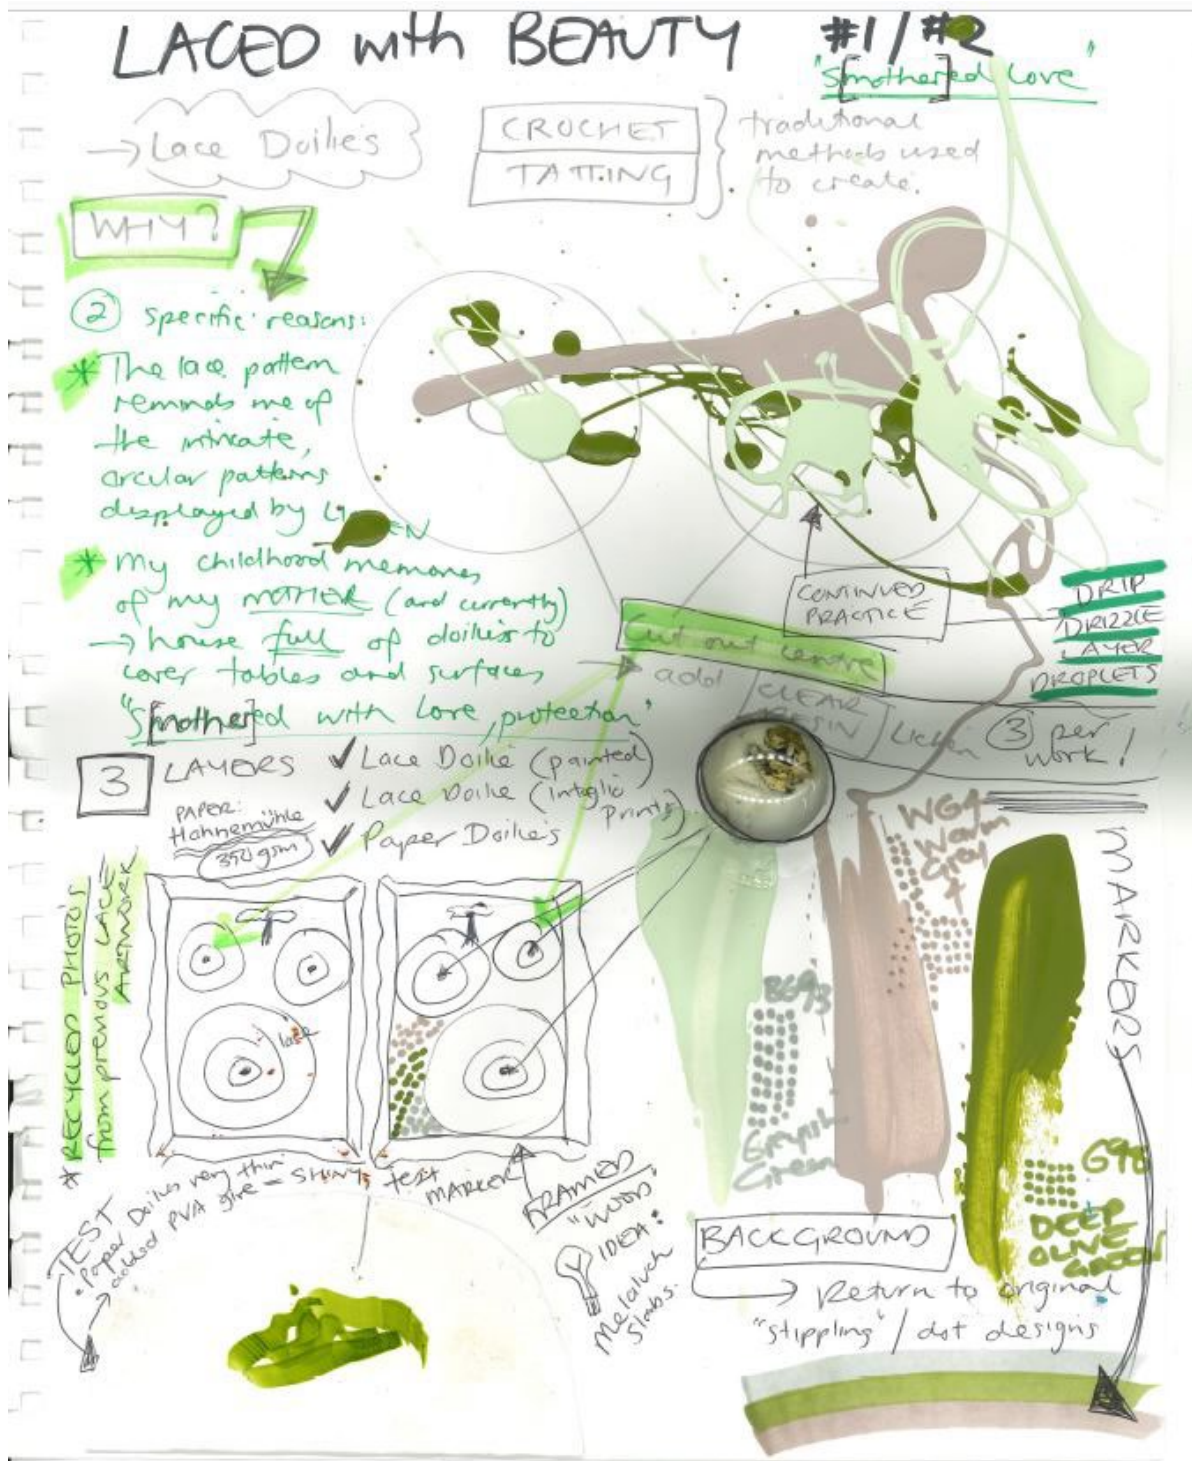 LACED with BEAUTY #1/#2
"S[mother]ed Love"
→ Lace Doilie's
CROCHET
TATTING
traditional
methods used
to create.
WHY?
② specific reasons:
* The lace pattern
reminds me of
the intricate,
circular patterns
displayed by
* My childhood memories
of my MOTHER (and currently)
→ house full of doilies to
cover tables and surfaces
"S[mother]ed with Love, protection"
CONTINUED
PRACTICE
DRIP
DRIZZLE
LAYER
DROPLETS
Cut out centre
→ add
CLEAR
RESIN
Lichen
③ per
work!
3 LAYERS
✓ Lace Doilie (painted)
✓ Lace Doilie (Intaglio
Prints)
✓ Paper Doilie's
PAPER:
Hahnemühle
350 gsm
* RECYCLED PHOTO'S
from previous LACE
ARTWORK
lace
WG4
Warm
Grey
4
MARKERS
BG93
Greyish
Green
G98
DEEP
OLIVE
GREEN
TEST
• Paper Doilies very thin
added PVA glue = SHINY, test
MARKER
FRAMED
"WOOD"
IDEA:
Slabs.
BACKGROUND
→ Return to original
"stippling" / dot designs